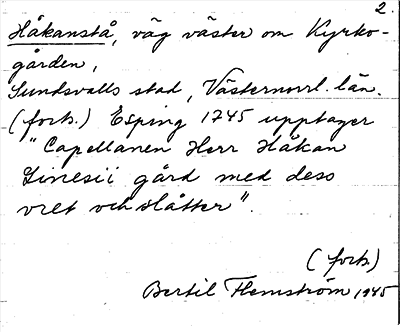 2.
Håkanstå, väg väster om Kyrko-
gården,
Sundsvalls stad, Västernorrl. län.
(forts.) Esping 1745 upptager
"Capellanen Herr Håkan
Sinesii gård med dess
vret och slåtter".
(forts)
Bertil Flemström 1945